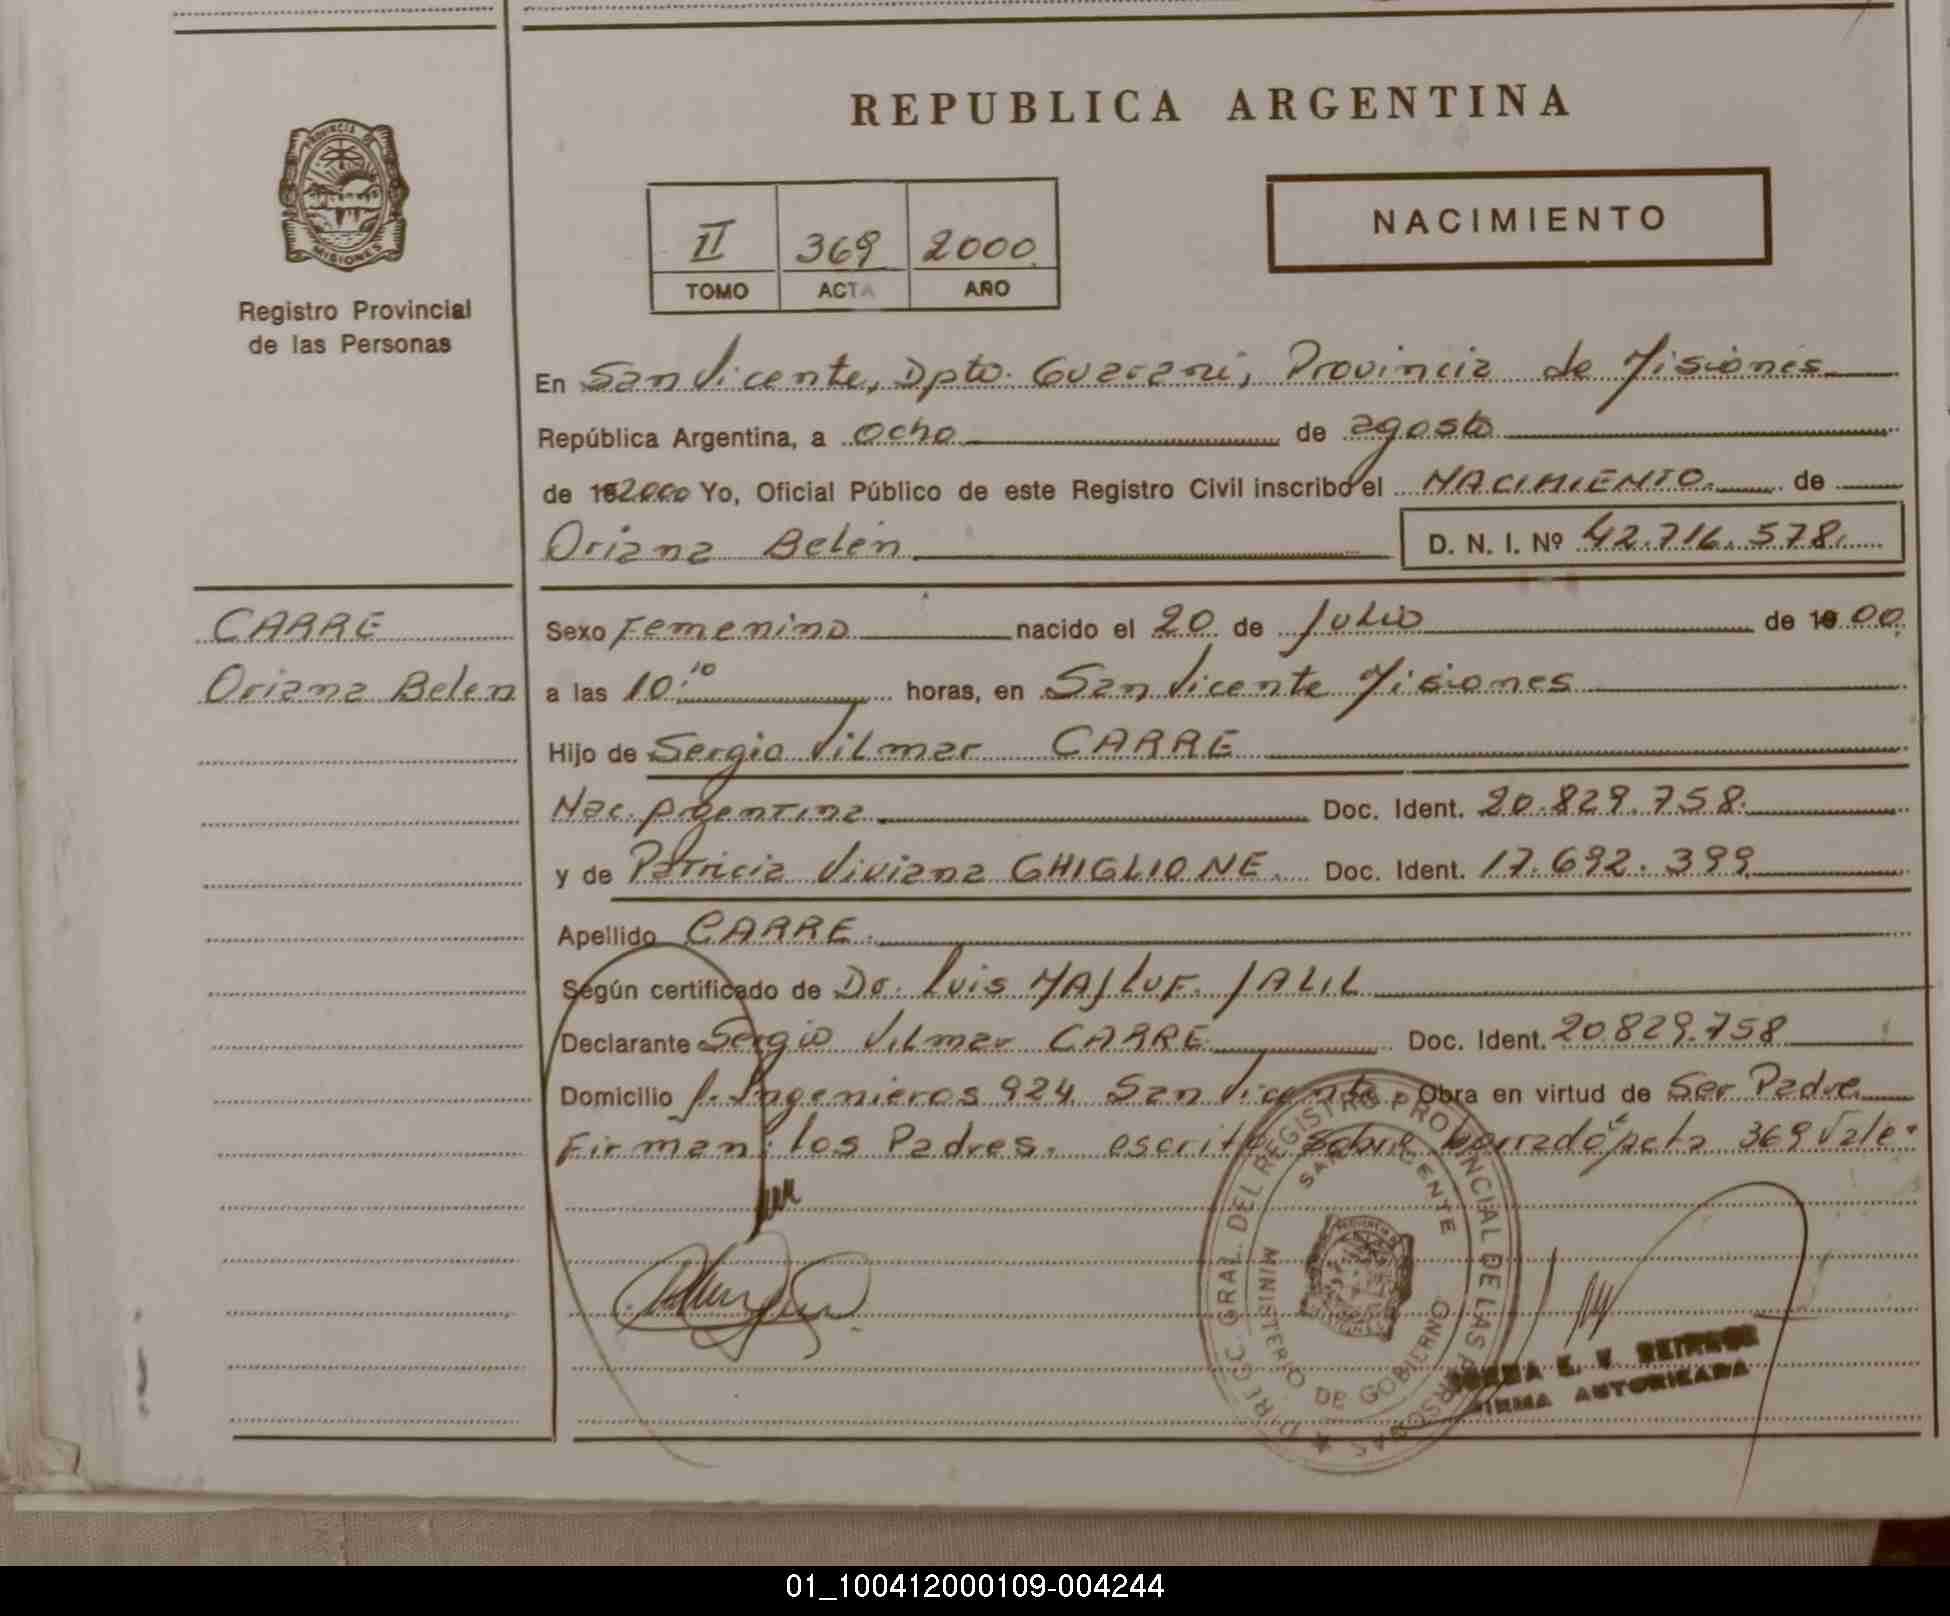 REPUBLICA ARGENTINA
PROVINCIA DE
MISIONES
Registro Provincial
de las Personas
II 369 2000
TOMO ACTA AÑO
NACIMIENTO
En San Vicente, Dpto. Guaraní, Provincia de Misiones
República Argentina, a ocho de agosto
de 192000 Yo, Oficial Público de este Registro Civil inscribo el NACIMIENTO. de
Oriana Belén D. N. I. Nº 42.716.578.
CARRE
Oriana Belen
Sexo Femenino nacido el 20 de Julio de 19 00
a las 10:10 horas, en San Vicente Misiones
Hijo de Sergio Vilmar CARRE
Nac. Argentina Doc. Ident. 20.829.758.
y de Patricia Viviana GHIGLIONE. Doc. Ident. 17.692.399
Apellido CARRE.
Según certificado de Dr. Luis MAJLUF JALIL
Declarante Sergio Vilmar CARRE Doc. Ident. 20829.758
Domicilio J. Ingenieros 924 San Vicente Obra en virtud de Ser Padre
Firman: los Padres. escrito sobre borrado acta 369 Vale.
DIRECC. GRAL. DEL REGISTRO PROVINCIAL DE LAS PERSONAS
SAN VICENTE
MINISTERIO DE GOBIERNO
E. V.
FIRMA AUTORIZADA
01_100412000109-004244